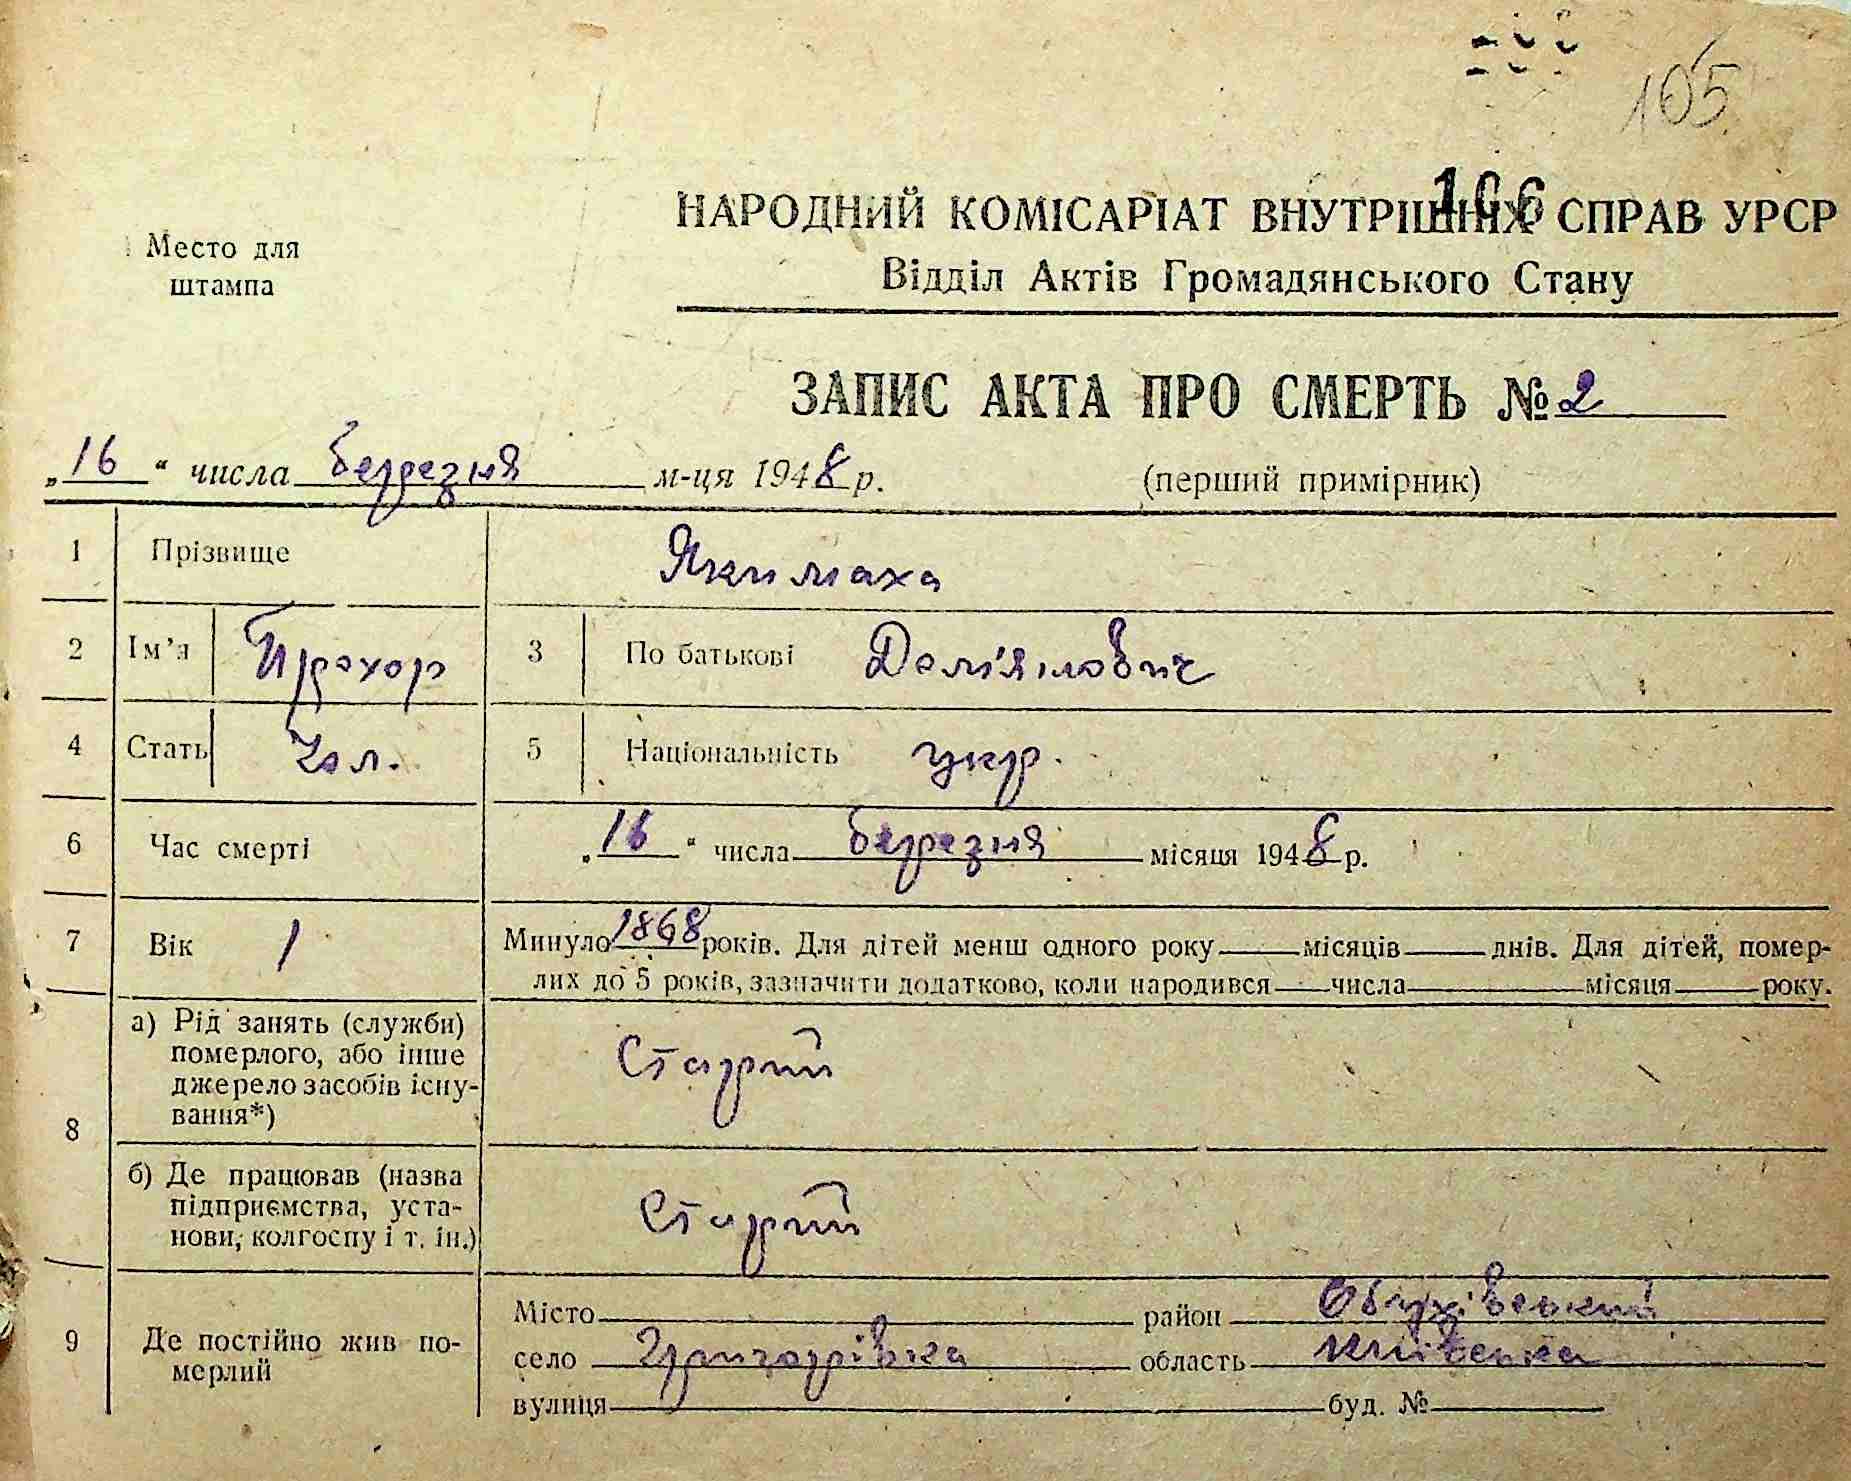 105
106
НАРОДНИЙ КОМІСАРІАТ ВНУТРІШНІХ СПРАВ УРСР
Место для
штампа
Відділ Актів Громадянського Стану
ЗАПИС АКТА ПРО СМЕРТЬ № 2
„16“ числа березня м-ця 1948 р. (перший примірник)
1 Прізвище Якимаха
2 Ім’я Прохор 3 По батькові Дем'янович
4 Стать Чол. 5 Національність укр.
6 Час смерті „16“ числа березня місяця 1948 р.
7 Вік Минуло 1868 років. Для дітей менш одного року місяців днів. Для дітей, помер-
лих до 5 років, зазначити додатково, коли народився числа місяця року.
8 а) Рід занять (служби)
померлого, або інше
джерело засобів існу-
вання*)
Старий
б) Де працював (назва
підприємства, уста-
нови, колгоспу і т. ін.)
Старий
9 Де постійно жив по-
мерлий
Місто район Обухівський
село Григорівка область Київська
вулиця буд. №